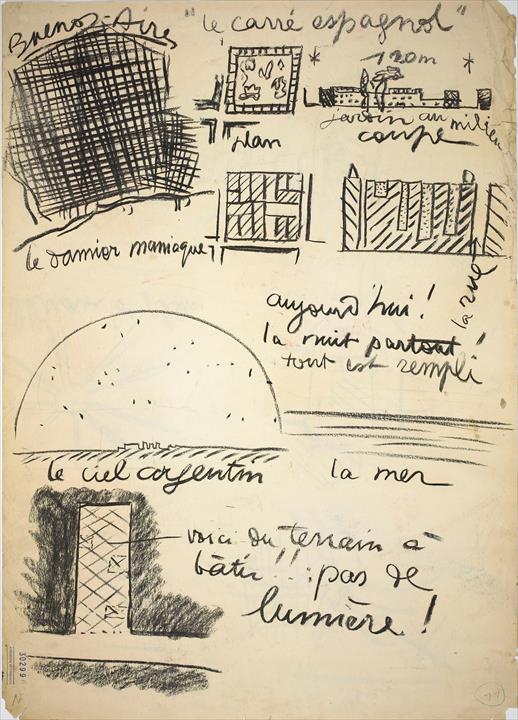 Buenos-Aires
"le carré espagnol"
120m
plan
jardin au milieu
coupe
le damier maniaque
la rue
aujourd'hui!
la nuit partout!
tout est rempli
le ciel argentin
la mer
voici du terrain à
bâtir!! pas de
lumière!
30299